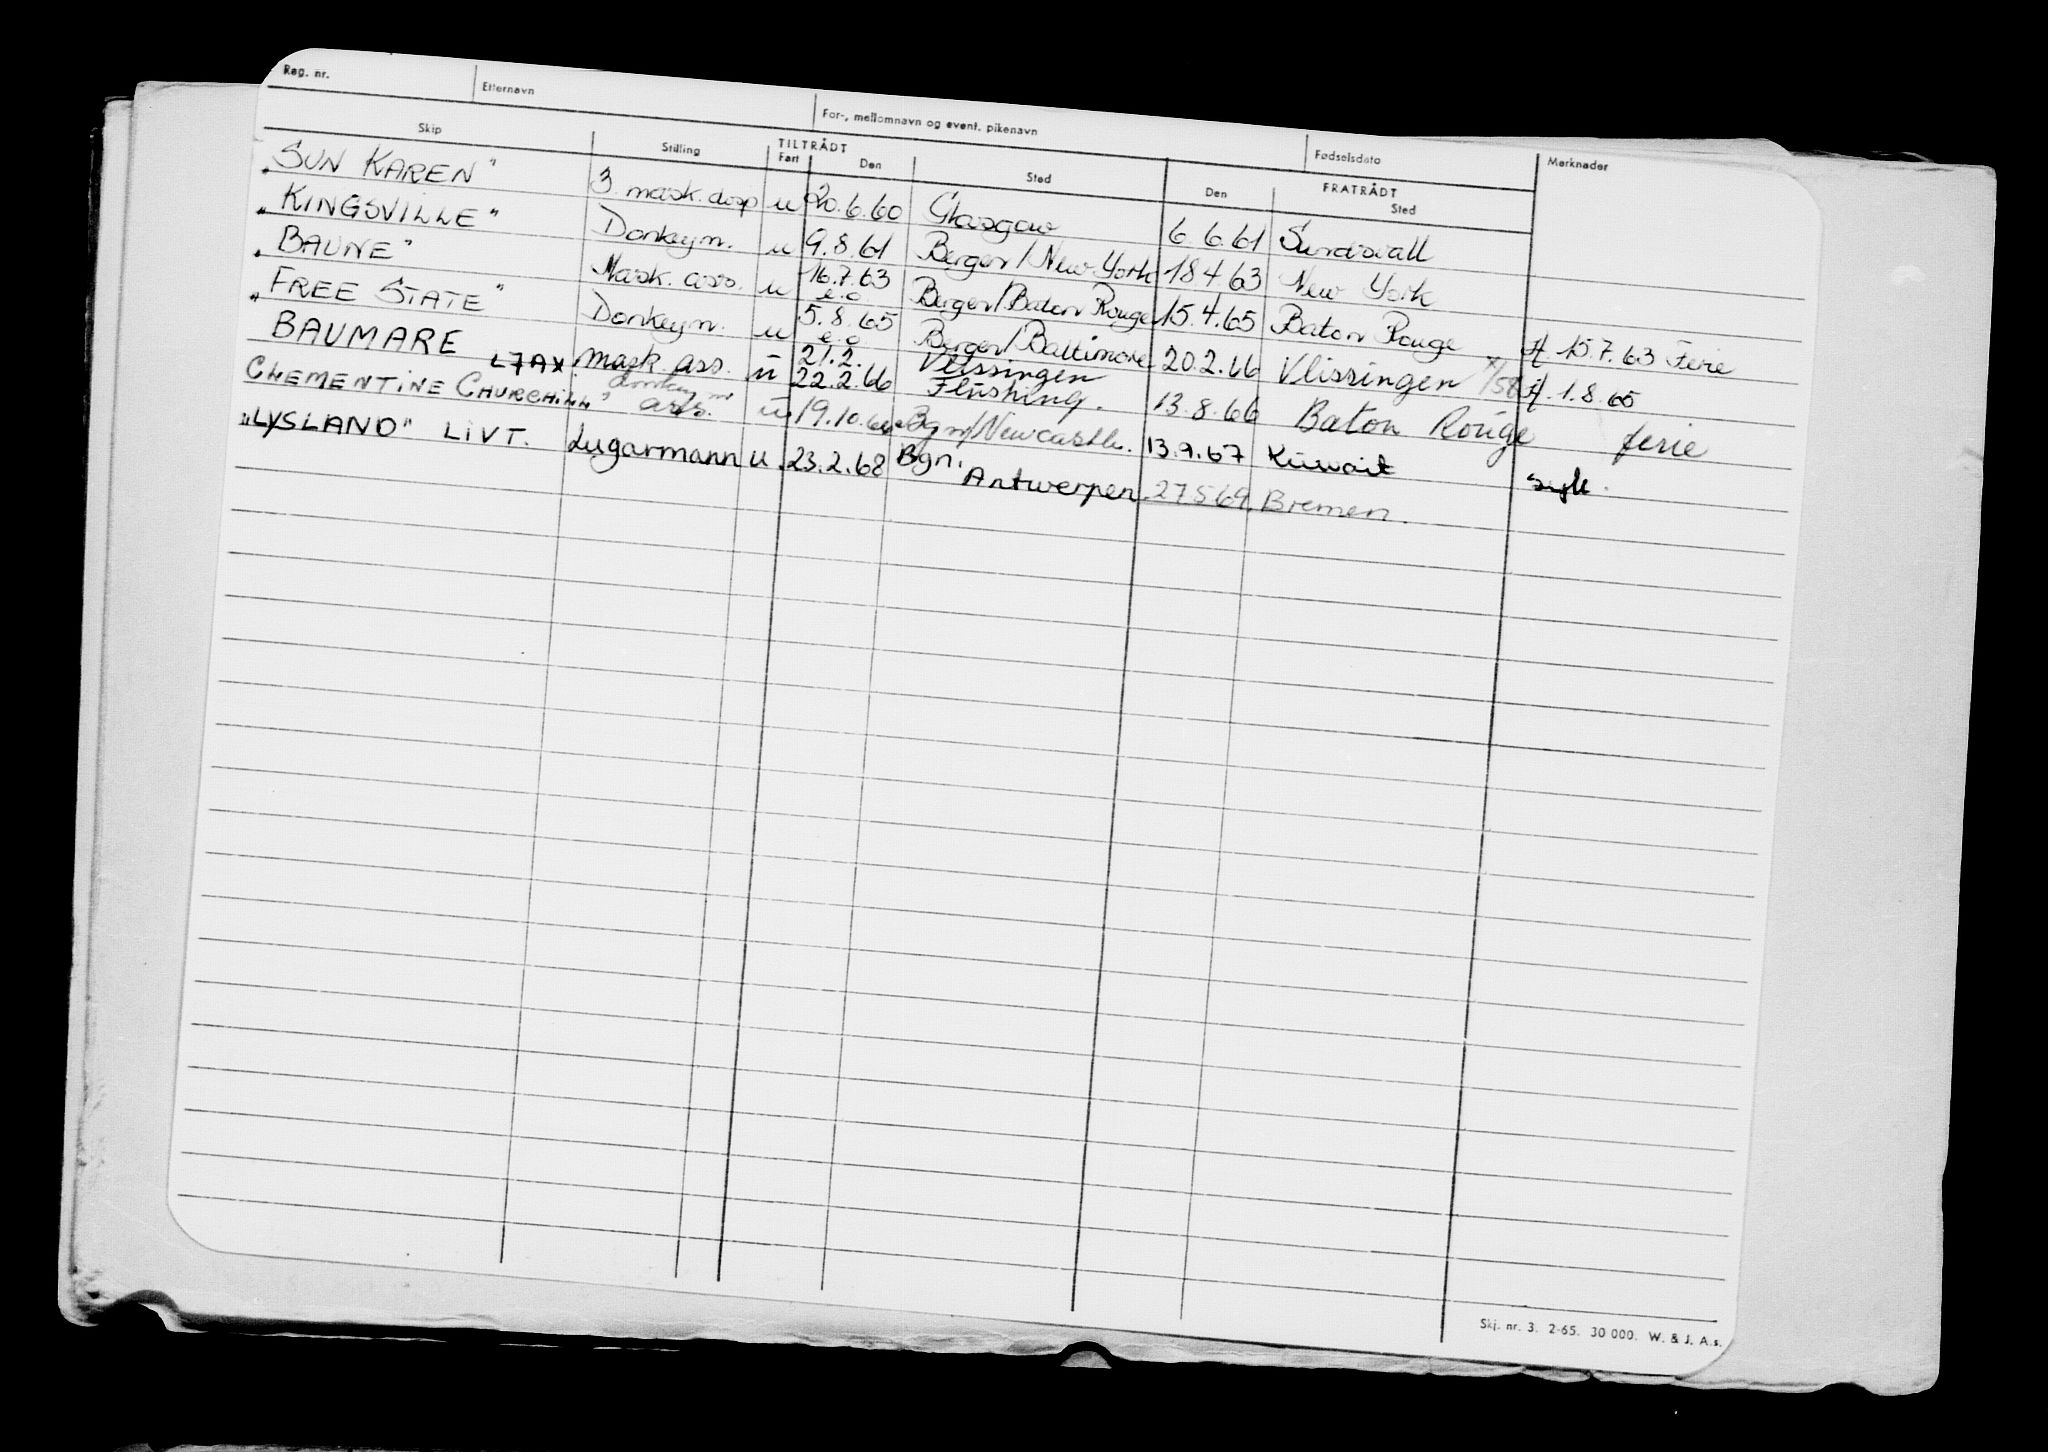 Reg. nr. Etternavn For-, mellomnavn og event. pikenavn Fødselsdato Merknader
Skip Stilling TILTRÅDT Fart Den Sted FRATRÅDT Den Sted
„SUN KAREN" 3. mask. u 20.6.60 Glasgow 6.6.61 Sundsvall
„KINGSVILLE" Donkeym. u 9.8.61 Bergen/New York 18.4.63 New York
„BAUNE" Mask. ass. u 16.7.63 e.o Bergen/Baton Rouge 15.4.65 Baton Rouge 15.7.63 Ferie
„FREE STATE" Donkeym. u 5.8.65 e.o Bergen/Baltimore 20.2.66 Vlissingen 1.8.65
BAUMARE L7AX mask. ass. ü 21.2. 22.2.66 Vlissingen Flüshing. 13.8.66 Baton Roúge ferie
CLEMENTINE CHURCHILL" donkeym ass. ü 19.10.66 Bgn/Newcastle. 13.9.67 Kuwait syk.
„LYSLAND" LIVT. Lugarmann u. 23.2.68 Bgn. Antwerpen. 27.5.69. Bremen.
Skj. nr. 3. 2-65. 30 000. W. & J. A.s.